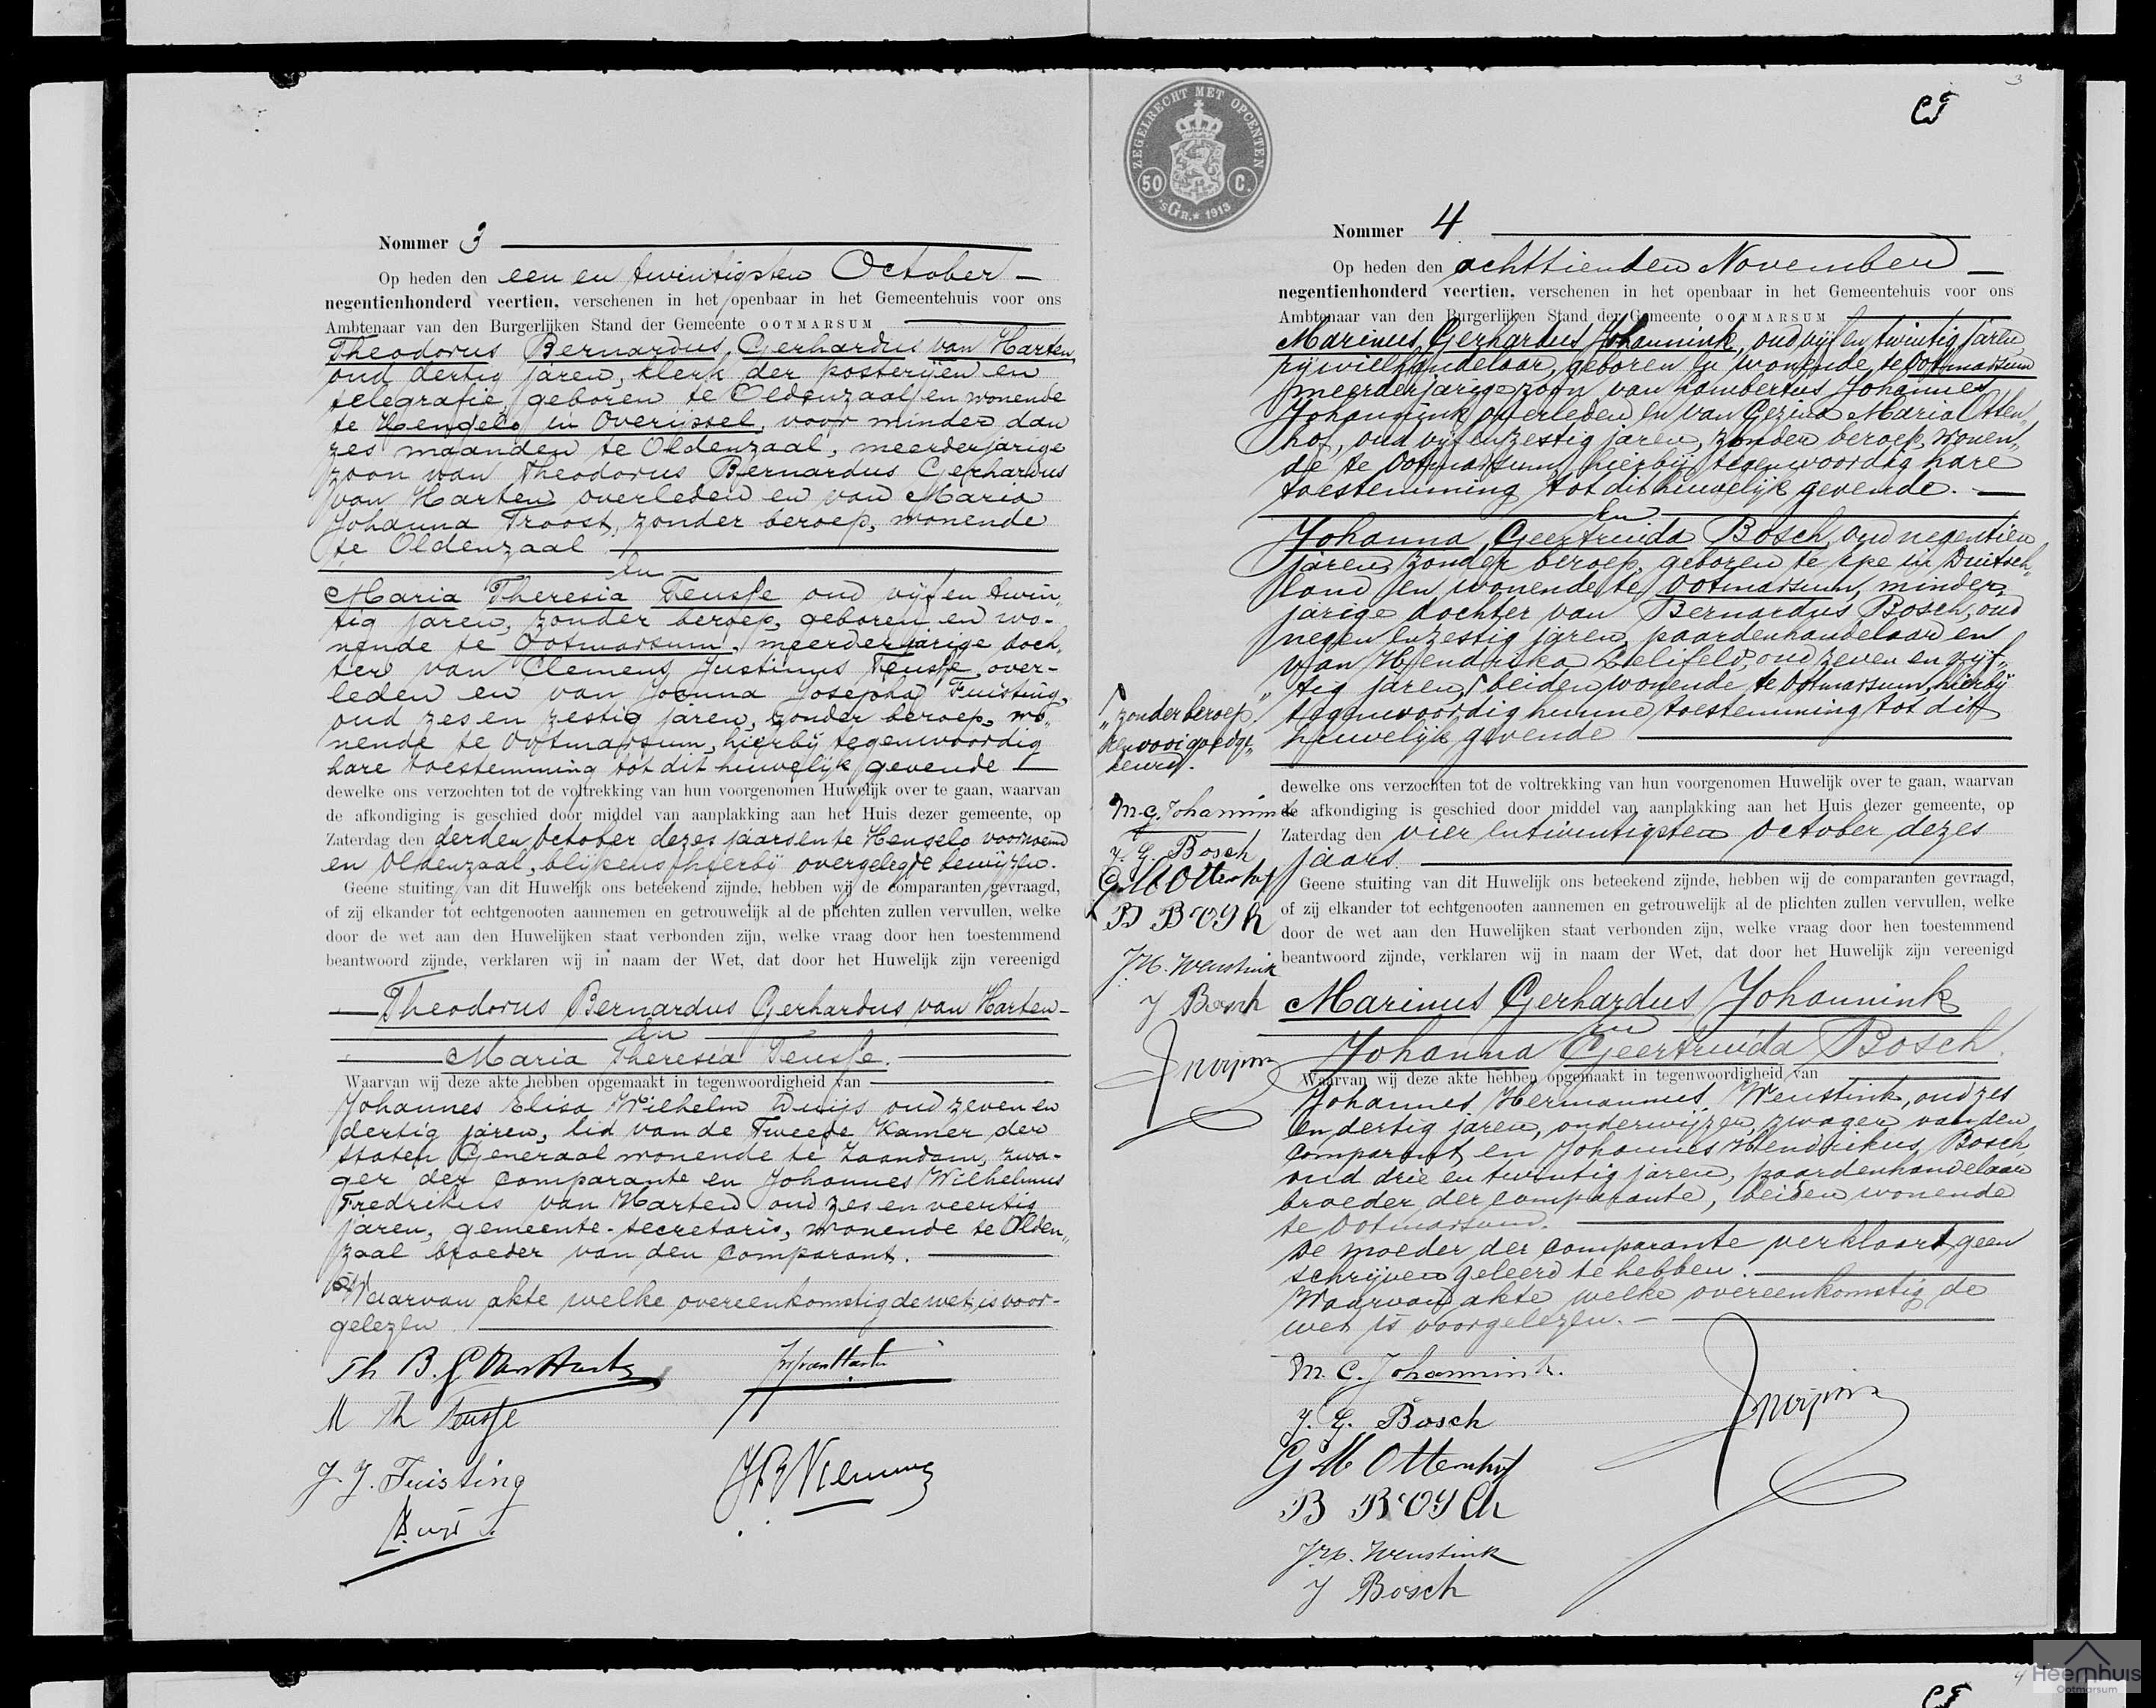 Nommer 3
Op heden den een en twintigsten October
negentienhonderd veertien, verschenen in het openbaar in het Gemeentehuis voor ons
Ambtenaar van den Burgerlijken Stand der Gemeente OOTMARSUM
Theodorus Bernardus Gerhardus van Harten,
oud dertig jaren, klerk der posterijen en
telegrafie, geboren te Oldenzaal en wonende
te Hengelo in Overijssel, voor minder dan
zes maanden te Oldenzaal, meerderjarige
zoon van Theodorus Bernardus Gerhardus
van Harten overleden en van Maria
Johanna Troost, zonder beroep, wonende
te Oldenzaal
En
Maria Theresia Teusse oud vijf en twin„
tig jaren, zonder beroep, geboren en wo-
nende te Ootmarsum, meerderjarige doch„
ter van Clemens Justinus Teusse, over-
leden en van Joanna Josepha Fuisting,
oud zes en zestig jaren, zonder beroep, wo„
nende te Ootmarsum, hierbij tegenwoordig
hare toestemming tot dit huwelijk gevende
dewelke ons verzochten tot de voltrekking van hun voorgenomen Huwelijk over te gaan, waarvan
de afkondiging is geschied door middel van aanplakking aan het Huis dezer gemeente, op
Zaterdag den derden October dezes jaars en te Hengelo voornoemd
en Oldenzaal, blijkens hierbij overgelegde bewijzen.
Geene stuiting van dit Huwelijk ons beteekend zijnde, hebben wij de comparanten gevraagd,
of zij elkander tot echtgenooten aannemen en getrouwelijk al de plichten zullen vervullen, welke
door de wet aan den Huwelijken staat verbonden zijn, welke vraag door hen toestemmend
beantwoord zijnde, verklaren wij in naam der Wet, dat door het Huwelijk zijn vereenigd
Theodorus Bernardus Gerhardus van Harten
En
Maria Theresia Teusse.
Waarvan wij deze akte hebben opgemaakt in tegenwoordigheid van
Johannes Elisa Wilhelm Duijs oud zeven en
dertig jaren, lid van de Tweede Kamer der
Staten Generaal wonende te Zaandam, zwa-
ger der comparante en Johannes Wilhelmus
Fredrikus van Harten oud zes en veertig
jaren, gemeente-secretaris, wonende te Olden„
zaal broeder van den comparant.
Waarvan akte welke overeenkomstig de wet is voor-
gelezen
Th B. G van Harten
M Th Teusse
J. J. Fuisting
Duijs
3
50 C.
ZEGELRECHT MET OPCENTEN
'SGR. 1913
Nommer 4
Op heden den achttienden November
negentienhonderd veertien, verschenen in het openbaar in het Gemeentehuis voor ons
Ambtenaar van den Burgerlijken Stand der Gemeente OOTMARSUM
Marinus Gerhardus Johannink, oud vijf en twintig jaren,
rijwielhandelaar, geboren en wonende te Ootmarsum
meerderjarige zoon van Lambertus Johannes
Johannink overleden en van Gezina Maria Otten„
hof, oud vijf en zestig jaren, zonder beroep, wonen„
de te Ootmarsum, hierbij tegenwoordig hare
toestemming tot dit huwelijk gevende.
En
Johanna Geertruida Bosch, oud negentien
jaren, zonder beroep, geboren te Epe in Duitsch„
land en wonende te Ootmarsum, minder„
jarige dochter van Bernardus Bosch, oud
negen en zestig jaren, paardenhandelaar en
van Hendrika Lelifeld, oud zeven en vijf„
tig jaren, beiden wonende te Ootmarsum, hierbij
tegenwoordig hunne toestemming tot dit
huwelijk gevende
„zonder beroep.“
Renvooi goedge„
keurd.
M. G. Johannink
J. G. Bosch
G M Ottenhof
B BOSCh
J.H. Wenstink
J Bosch
dewelke ons verzochten tot de voltrekking van hun voorgenomen Huwelijk over te gaan, waarvan
de afkondiging is geschied door middel van aanplakking aan het Huis dezer gemeente, op
Zaterdag den vier en twintigsten October dezes
jaars
Geene stuiting van dit Huwelijk ons beteekend zijnde, hebben wij de comparanten gevraagd,
of zij elkander tot echtgenooten aannemen en getrouwelijk al de plichten zullen vervullen, welke
door de wet aan den Huwelijken staat verbonden zijn, welke vraag door hen toestemmend
beantwoord zijnde, verklaren wij in naam der Wet, dat door het Huwelijk zijn vereenigd
Marinus Gerhardus Johannink
En
Johanna Geertruida Bosch.
Waarvan wij deze akte hebben opgemaakt in tegenwoordigheid van
Johannes Hermannus Wenstink, oud zes
en dertig jaren, onderwijzer, zwager van den
comparant en Johannes Hendrikus Bosch
oud drie en twintig jaren, paardenhandelaar
broeder der comparante, beiden wonende
te Ootmarsum.
De moeder der comparante verklaart geen
schrijven geleerd te hebben.
Waarvan akte welke overeenkomstig de
wet is voorgelezen.
M. G. Johannink.
J. G. Bosch
G M Ottenhof
B BOSCh
J.H. Wenstink
J Bosch
Heemhuis
Ootmarsum